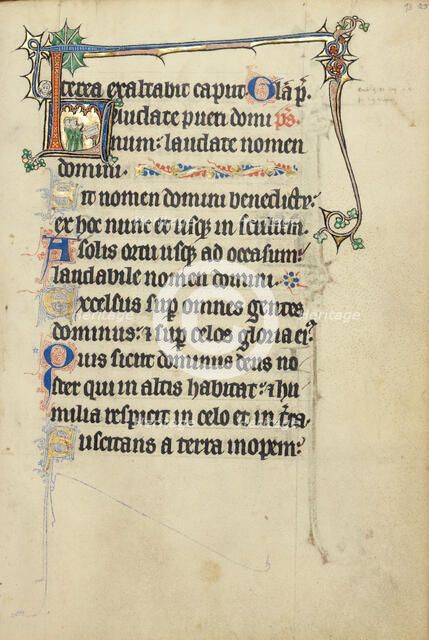 terea exaltabit caput Gl̄a p̄.
Laudate pueri domi ps̄.
num: laudate nomen
domini.
Sit nomen domini benedictꝰ:
ex hoc nunc et usq; in sc̄lum.
A solis ortu usq; ad occasum:
laudabile nomen domini.
Excelsus sup̄ omnes gentes
dominus: ⁊ sup̄ celos gloria eiꝰ
Quis sicut dominus deus no
ster qui in altis habitat: ⁊ hu
milia respicit in celo et in t̄ra.
Suscitans a terra inopem:
Heritage